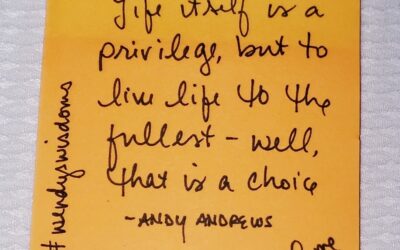 Life itself is a
privilege, but to
live life to the
fullest - well,
that is a choice
-ANDY ANDREWS
#wendyswisdoms